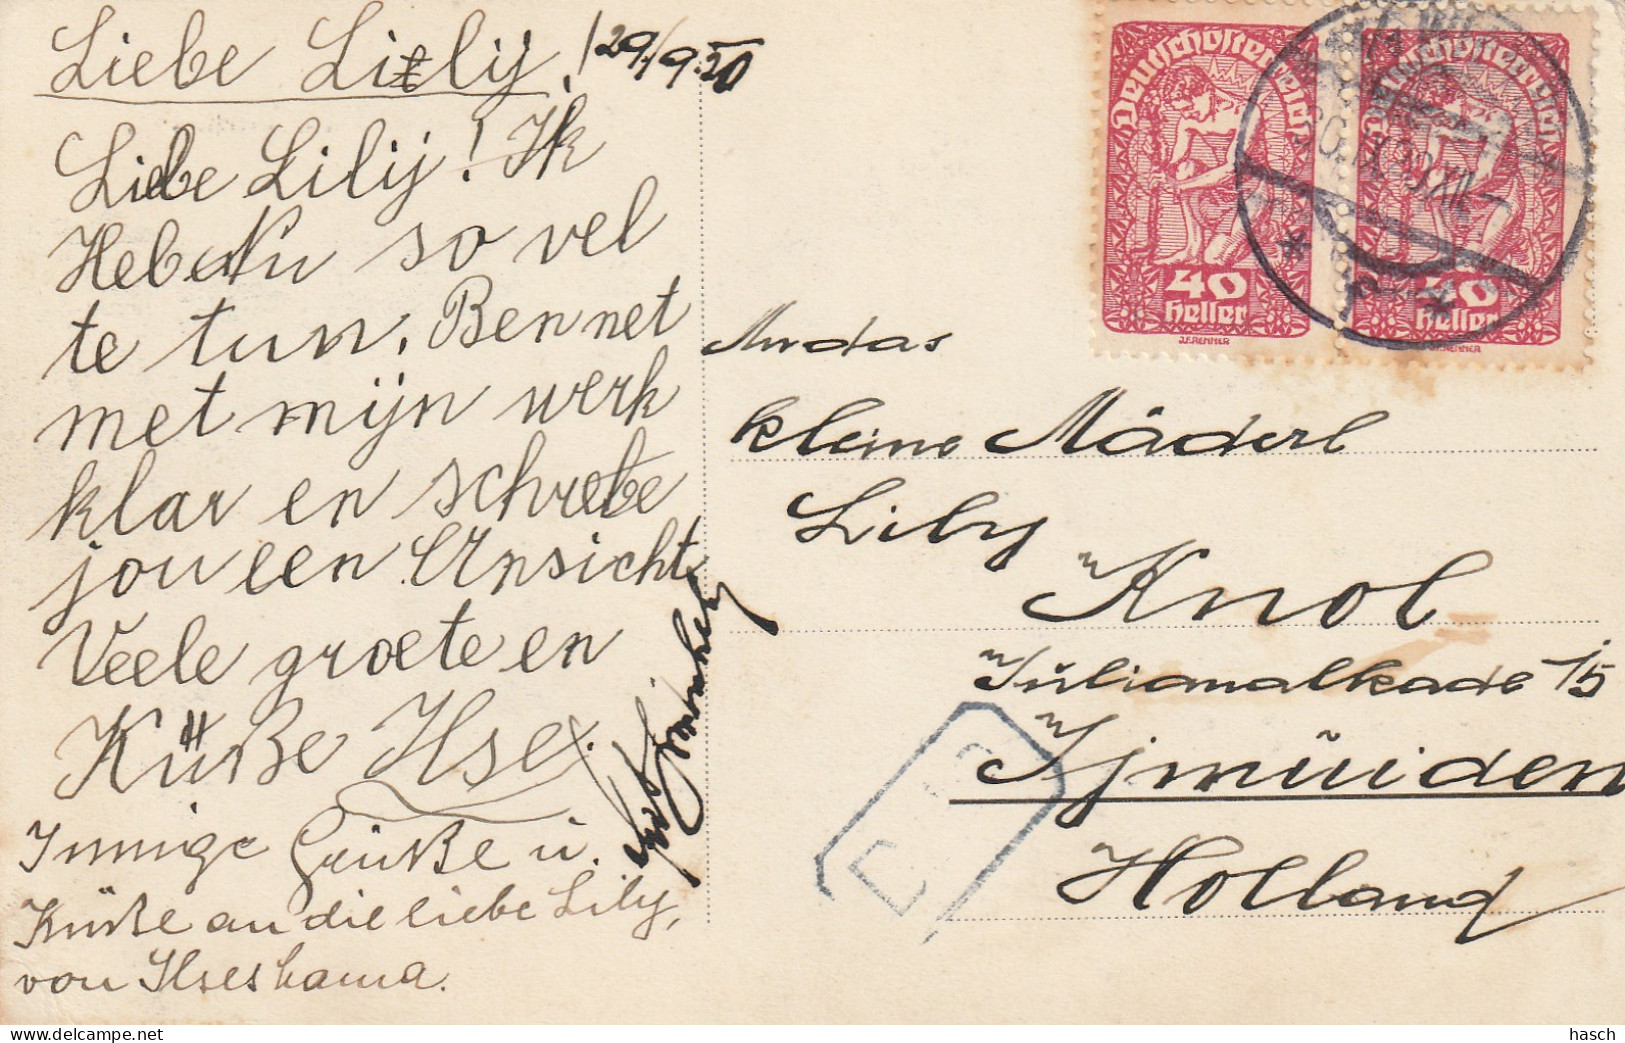 Liebe Lizly! 29./9.20
Liebe Lilij! Ik
Heb Nu so vel
te tun. Ben net
met mijn werk
klar en schrebe
jou een Ansicht
Veele groete en
Küße Ilse.
Innige Grüße u.
Küße an die liebe Lily,
von Ilses Mama.
An das
kleine Mäderl
Lily
Knol
Julianalkade 15
Ijmüiden
Holland
Deutschösterreich
40
heller
J.F.RENNER
Deutschösterreich
40
heller
J.F.RENNER
hasch
delcampe.net